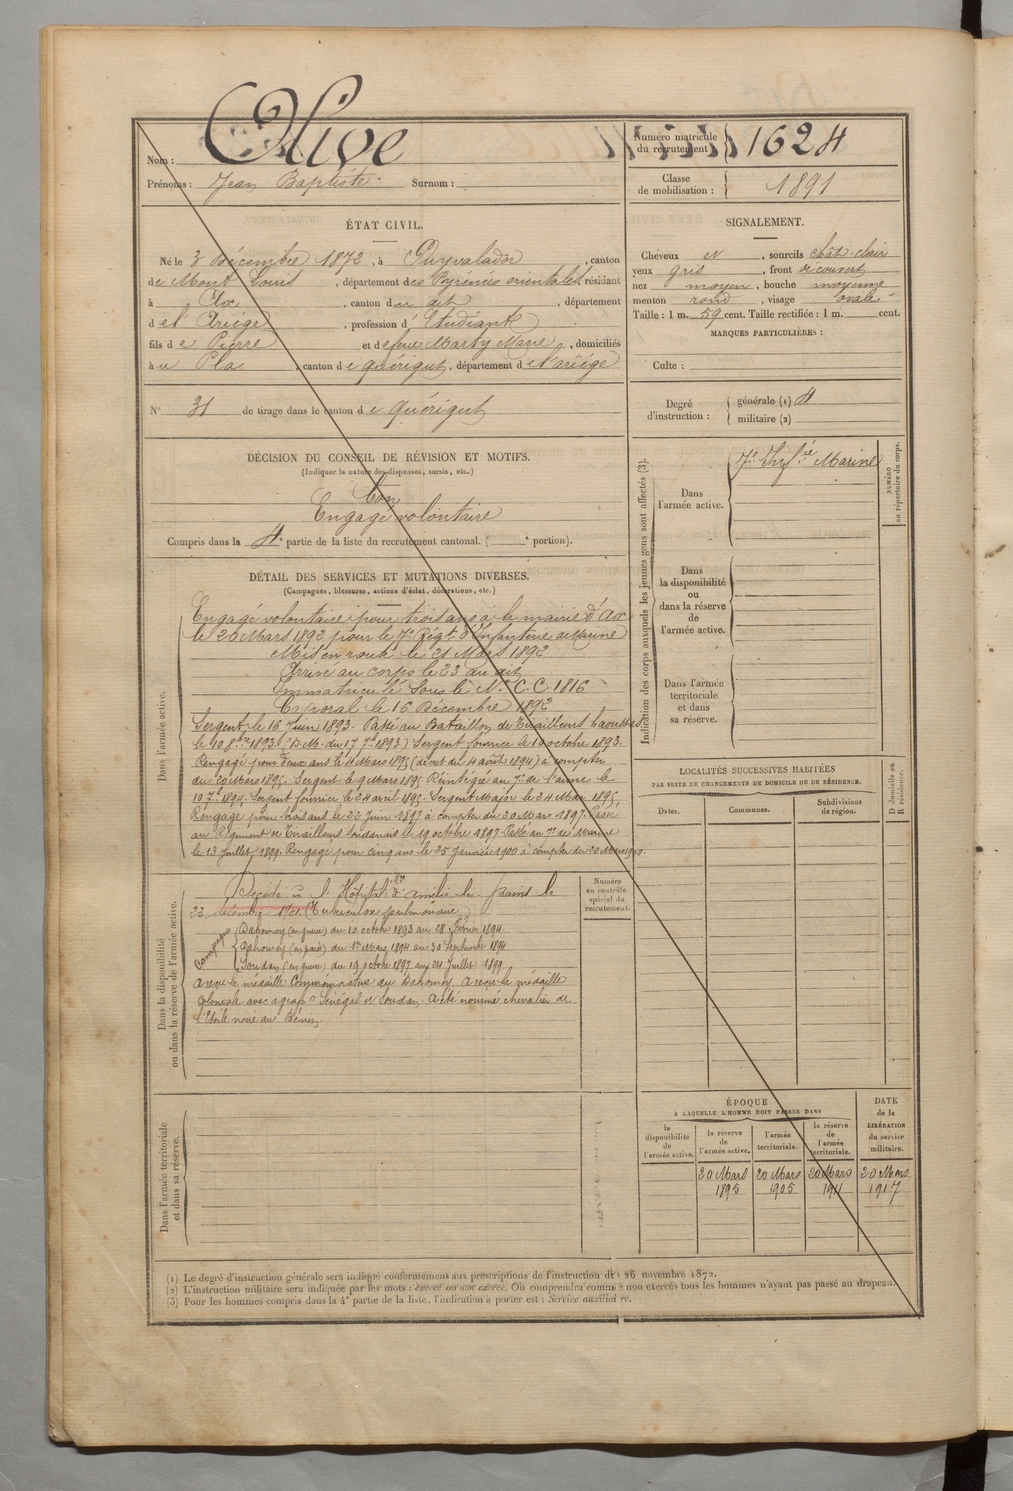 Nom : Olive
Prénoms : Jean Baptiste. Surnom :
Numéro matricule du recrutement : 1624
Classe de mobilisation : 1891
ÉTAT CIVIL.
Né le 3 Décembre 1872, à Puyvalador, canton
de Mont Louis, département des Pyrénées orientales, résidant
à Ax, canton du dit, département
de l'Ariège, profession d'Etudiant
fils de Pierre et de feue Marty Marie, domiciliés
à u Pla, canton de Quérigut, département de l'ariège
N° 31 de tirage dans le canton de Quérigut
SIGNALEMENT.
Cheveux et, sourcils chât. clair
yeux gris, front découvert
nez moyen, bouche moyenne
menton rond, visage ovale
Taille : 1 m. 59 cent. Taille rectifiée : 1 m. cent.
MARQUES PARTICULIÈRES :
Culte :
Degré d'instruction : générale (1) 4
militaire (2)
DÉCISION DU CONSEIL DE RÉVISION ET MOTIFS.
(Indiquer la nature des dispenses, sursis, etc.)
Bon
Engagé volontaire
Compris dans la 4e partie de la liste du recrutement cantonal. ( e portion).
DÉTAIL DES SERVICES ET MUTATIONS DIVERSES.
(Campagnes, blessures, actions d'éclat, décorations, etc.)
Dans l'armée active.
Engagé volontaire pour trois ans à la mairie d'Ax
le 20 Mars 1892 pour le 7e Régt d'Infanterie de Marine
Mis en route le 21 Mars 1892
Arrivé au corps le 23 du dit
Immatriculé sous le N° C.C. 1816
Caporal le 16 Décembre 1892
Sergent le 16 Juin 1893. Passé au Bataillon de Tirailleurs haoussas
le 10 8bre 1893 (D.M. du 17 7bre 1893) Sergent fourrier le 10 octobre 1893.
Rengagé pour deux ans le 4 Mars 1895 (décret du 4 août 1894) à compter
du 20 Mars 1895. Sergent le 9 Mars 1895 Réintégré au 7e de l'arme le
10 7bre 1894. Sergent fourrier le 24 avril 1895. Sergent Major le 24 Mai 1895.
Rengagé pour trois ans le 22 Juin 1897 à compter du 20 Mars 1897. Passé
au Régiment de Tirailleurs Soudanais le 19 octobre 1897 Passé au 7e de Marine
le 13 Juillet 1899. Rengagé pour cinq ans le 25 Janvier 1900 à compter du 20 Mars 1900.
Dans la disponibilité
ou dans la réserve de l'armée active.
Décédé à l'Hôpital Mre d'Amélie les bains le
23 décembre 1901. (Tuberculose pulmonaire)
Campagnes
Dahomey (en guerre) du 10 octobre 1893 au 28 février 1894.
Dahomey (en paix) du 1er Mars 1894 au 30 Septembre 1894
Soudan (en guerre) du 19 octobre 1897 au 24 Juillet 1899
A reçu la médaille Commémorative du Dahomey. A reçu la médaille
Coloniale avec agrafe "Sénégal et Soudan. A été nommé chevalier de
l'Etoile noire du Bénin.
Numéro
au contrôle
spécial du
recrutement.
Dans l'armée territoriale
et dans sa réserve.
Indication des corps auxquels les jeunes gens sont affectés (3).
Dans
l'armée active.
7e Infrie Marine
NUMÉRO
au répertoire du corps.
Dans
la disponibilité
ou
dans la réserve
de
l'armée active.
Dans l'armée
territoriale
et dans
sa réserve.
LOCALITÉS SUCCESSIVES HABITÉES
PAR SUITE DE CHANGEMENTS DE DOMICILE OU DE RÉSIDENCE.
Dates.
Communes.
Subdivisions
de région.
D domicile ou
R résidence.
ÉPOQUE
À LAQUELLE L'HOMME DOIT PASSER DANS
la
disponibilité
de
l'armée active.
la réserve
de
l'armée active.
l'armée
territoriale.
la réserve
de
l'armée
territoriale.
DATE
de la
LIBÉRATION
du service
militaire.
20 Mars 20 Mars 20 Mars 20 Mars
1895 1905 1911 1917
(1) Le degré d'instruction générale sera indiqué conformément aux prescriptions de l'instruction du 26 novembre 1872.
(2) L'instruction militaire sera indiquée par les mots : exercé ou non exercé. On comprendra comme non exercés tous les hommes n'ayant pas passé au drapeau.
(3) Pour les hommes compris dans la 4e partie de la liste, l'indication à porter est : Service auxiliaire.